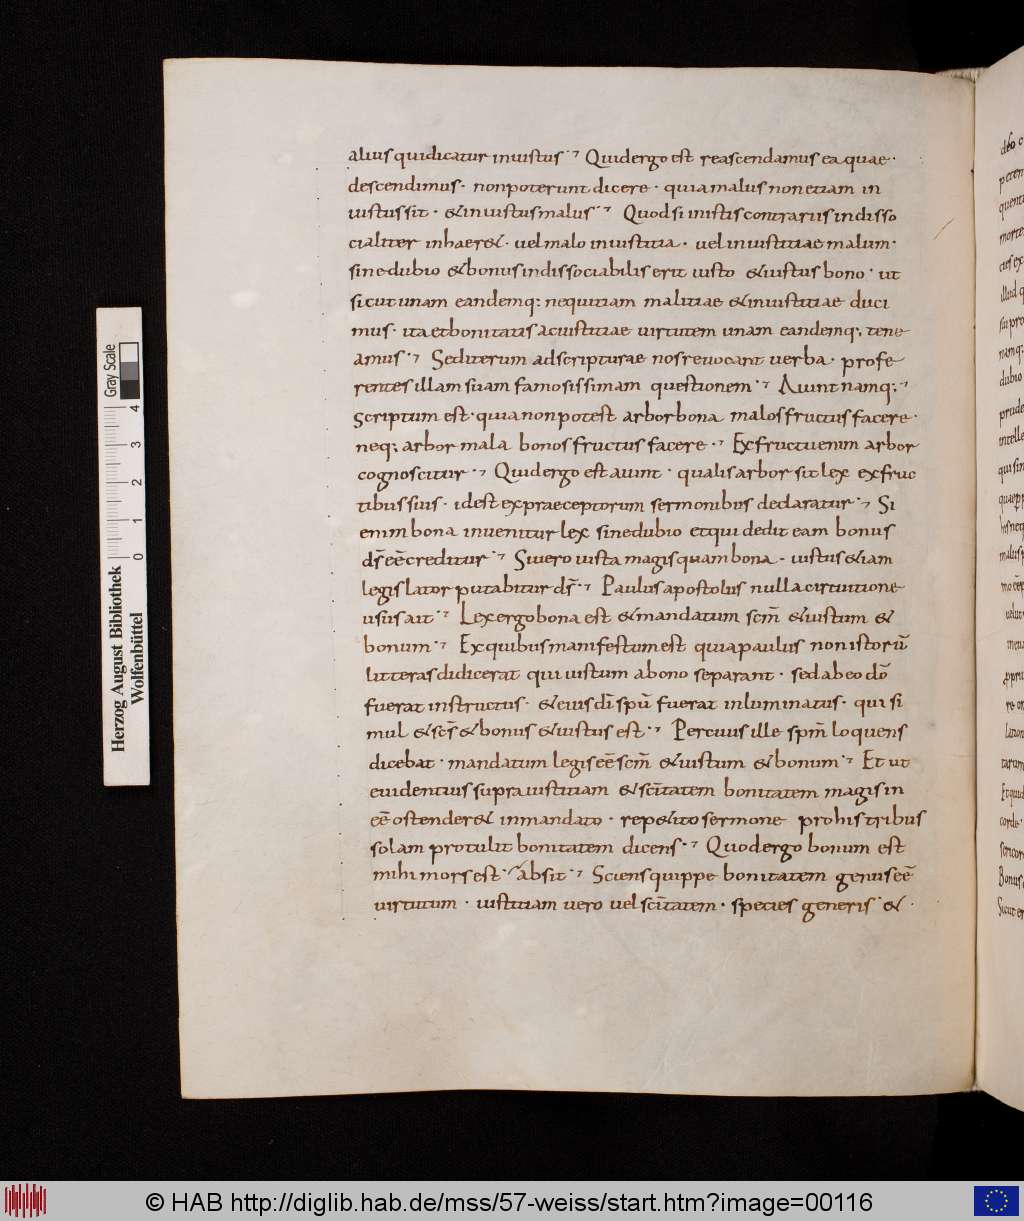 alius qui dicatur iniustus. Quid ergo est reascendamus ea quae.
descendimus. non poterunt dicere. quia malus non etiam in
iustus sit. & iniustus malus. Quod si iniustis contrariis indisso
cialiter inhaer&. uel malo iniustitia. uel iniustitiae malum.
sine dubio & bonus indissociabilis erit iusto & iustus bono. ut
sicut unam eandemq; nequitiam malitiae & iniustitiae duci
mus. ita et bonitatis ac iustitiae uirtutem unam eandemq; tene
amus. Sed iterum ad scripturae nos reuocant uerba. profe
rentes illam suam famosissimam questionem. Aiunt namq;.
scriptum est. quia non potest arbor bona malos fructus facere.
neq; arbor mala bonos fructus facere. Ex fructu enim arbor
cognoscitur. Quid ergo est aiunt. qualis arbor sit lex ex fruc
tibus suis. id est ex praeceptorum sermonibus declaratur. Si
enim bona inuenitur lex sine dubio et qui dedit eam bonus
ds̄ eē creditur. Si uero iusta magis quam bona. iustus &iam
legis lator putabitur ds̄. Paulus apostolus nulla circuitione
usus ait. Lex ergo bona est & mandatum scm̄ & iustum &
bonum. Ex quibus manifestum est quia paulus non istorū
litteras didicerat qui iustum a bono separant. sed ab eo dō
fuerat instructus. & eius dī spū fuerat inluminatus. qui si
mul & scs̄ & bonus & iustus est. Per cuius ille spm̄ loquens
dicebat. mandatum legis eē scm̄ & iustum & bonum. Et ut
euidentius supra iustitiam & scītatem bonitatem magis in
eē ostender& in mandato. rep&ito sermone pro his tribus
solam protulit bonitatem dicens. Quod ergo bonum est
mihi mors est. absit. Sciens quippe bonitatem genus eē
uirtutum. iustitiam uero uel scītatem. species generis. &.
Gray Scale
4
3
2
1
0
Herzog August Bibliothek
Wolfenbüttel
© HAB http://diglib.hab.de/mss/57-weiss/start.htm?image=00116